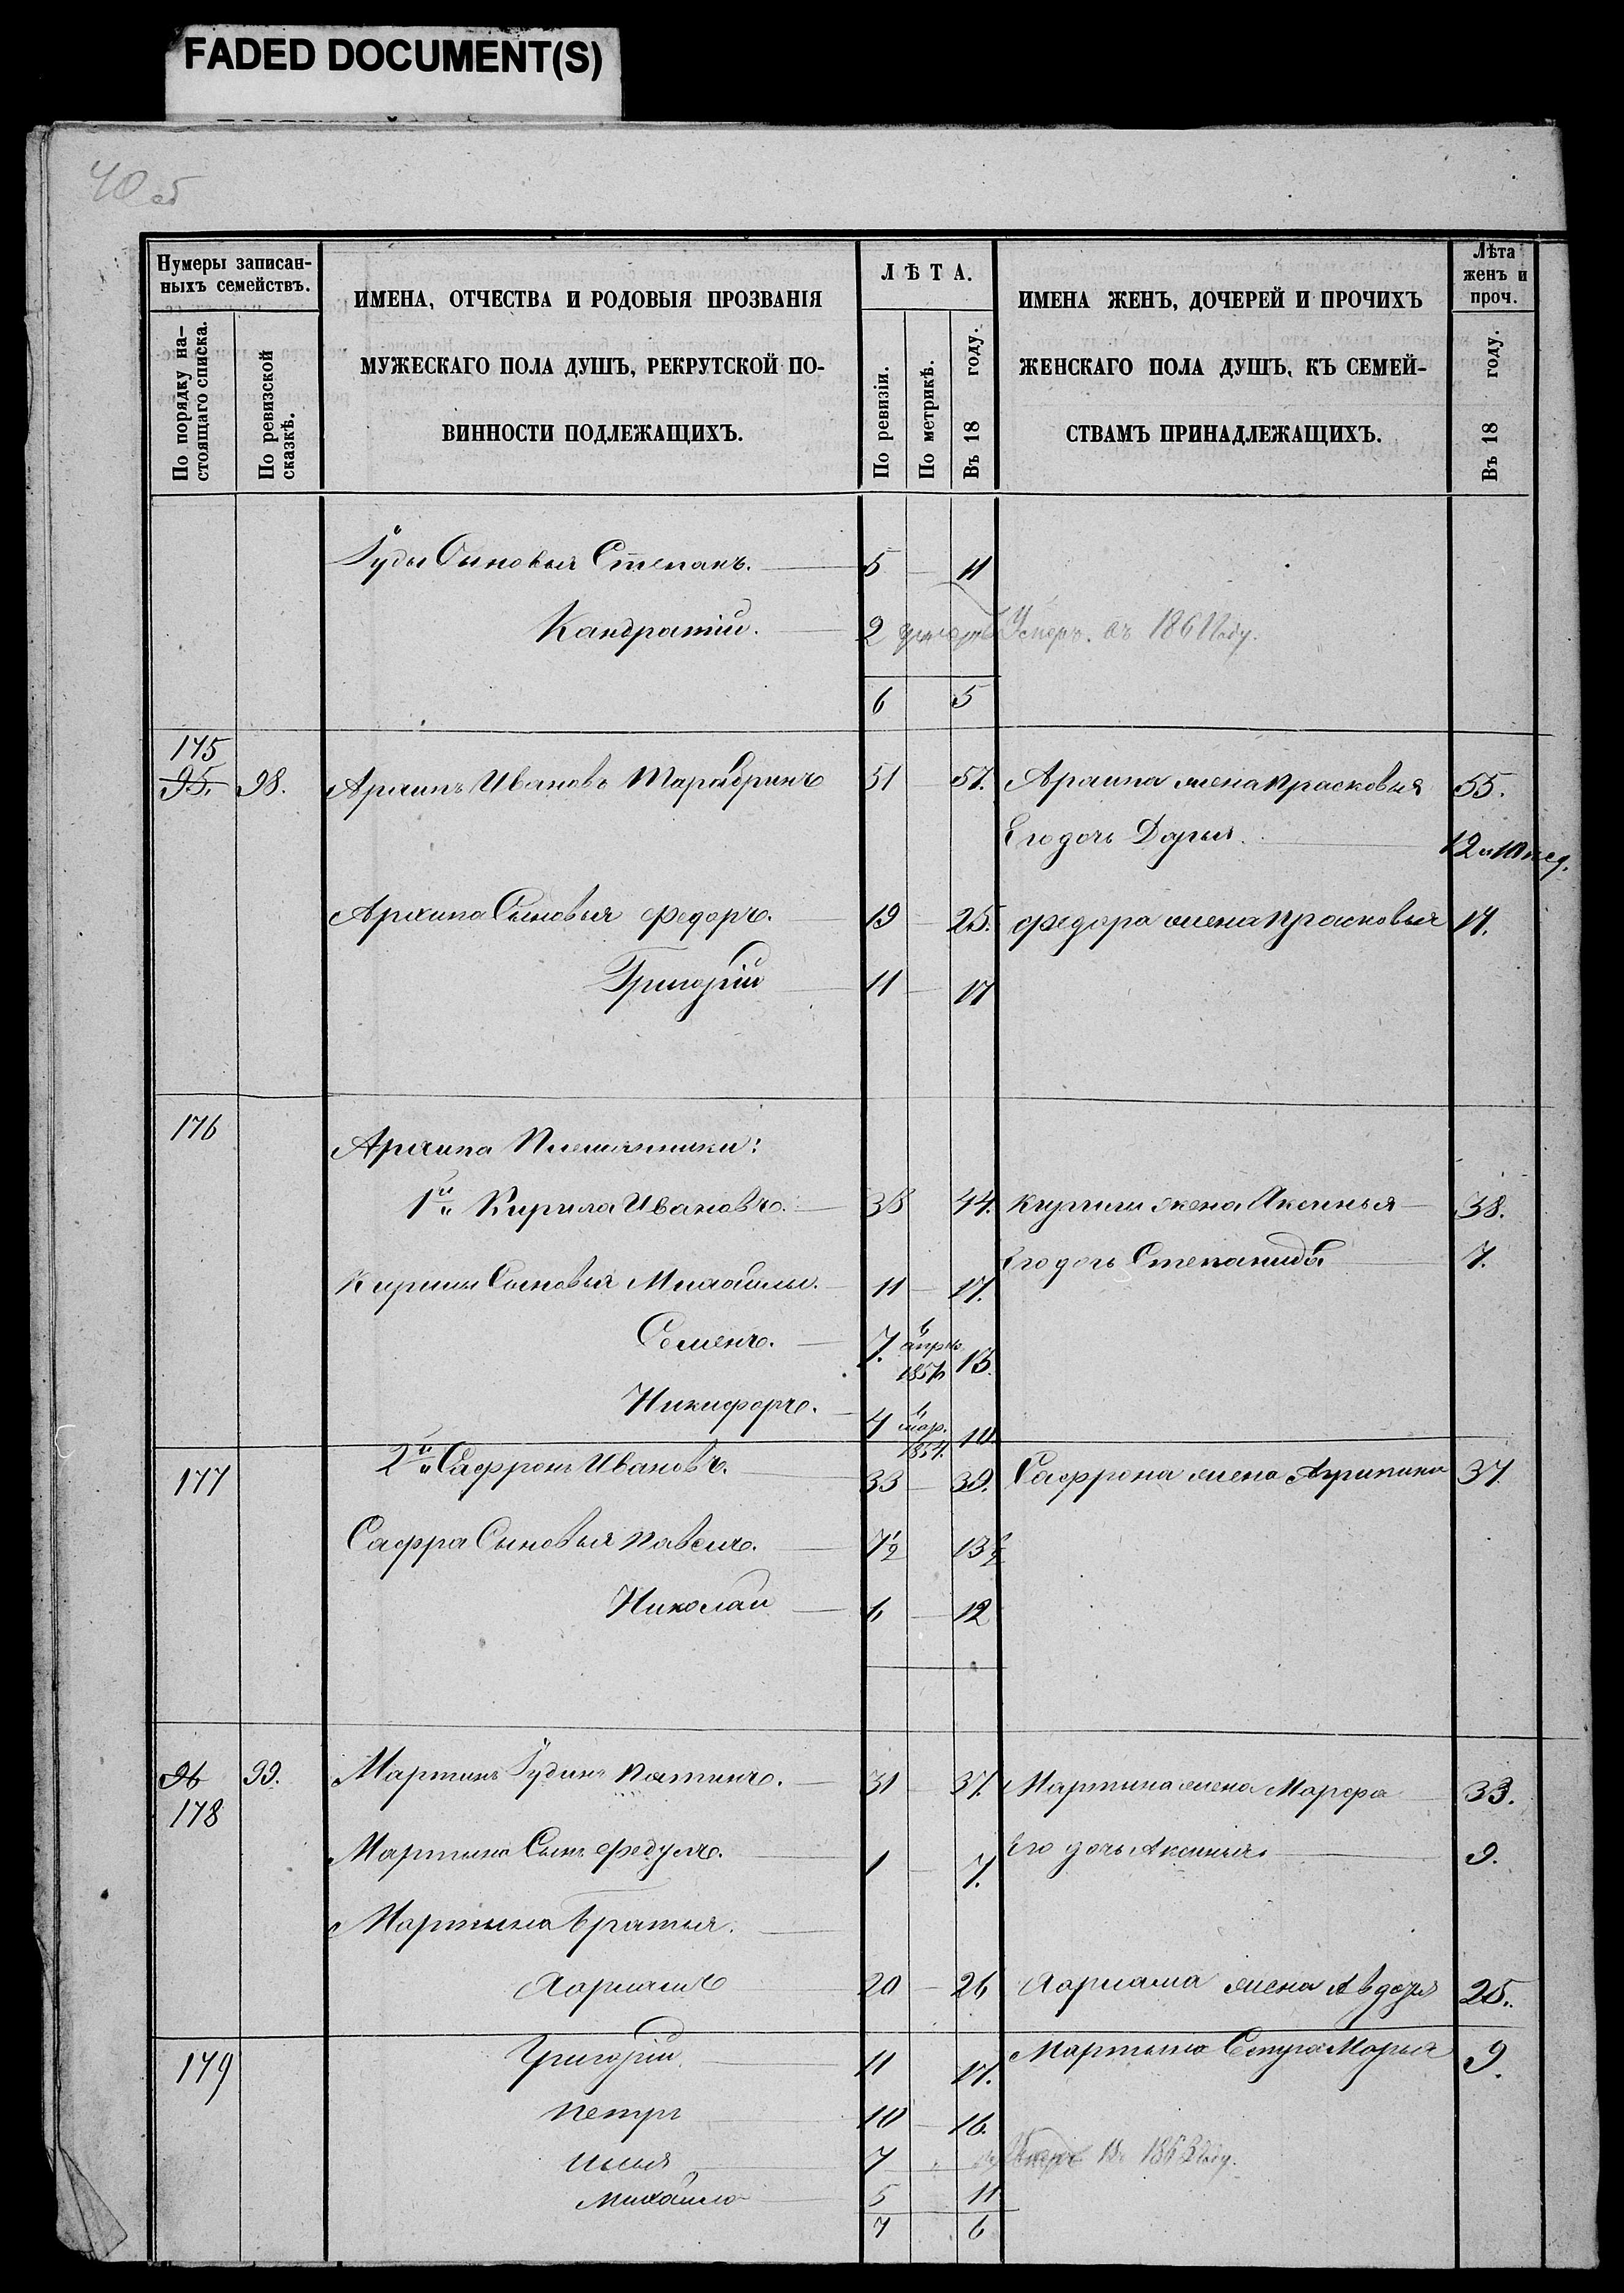 FADED DOCUMENT(S)
40 об
Нумеры записан-
ныхъ семействъ.
По порядку на-
стоящаго списка.
По ревизской
сказкѣ.
ИМЕНА, ОТЧЕСТВА И РОДОВЫЯ ПРОЗВАНІЯ
МУЖЕСКАГО ПОЛА ДУШЪ, РЕКРУТСКОЙ ПО-
ВИННОСТИ ПОДЛЕЖАЩИХЪ.
ЛѢТА.
По ревизіи.
По метрикѣ.
Въ 18 году.
ИМЕНА ЖЕНЪ, ДОЧЕРЕЙ И ПРОЧИХЪ
ЖЕНСКАГО ПОЛА ДУШЪ, КЪ СЕМЕЙ-
СТВАМЪ ПРИНАДЛЕЖАЩИХЪ.
Лѣта
женъ и
проч.
Въ 18 году.
Гуды Сыновья Степанъ. 5 11
Кандратій. 2 Умеръ. въ 1861 году.
6 5
175
95. 98. Архипъ Ивановъ 51 57. Архипа жена Прасковья 55.
Его дочь Дарья. 12 и 10 нед.
Архипа Сыновья Федоръ. 19 25. Федора жена Прасковья 17.
Григорій 11 17
176
Архипа Племянники:
1й Кирила Ивановъ. 38 44. Кирилы жена Аксинья 38.
Его дочь Степанида 7.
Кирилы Сыновья Михайлы. 11 17.
Семенъ. 7. апрѣ. 1851 13.
Никифоръ. 4 мар. 1854. 10.
177 2й Сафронъ Ивановъ. 33 39. Сафрона жена Агрипина 37
Сафра Сыновья Павелъ. 7 1/2 13 1/2
Николай 6 12
96 99. Мартинъ Гудинъ Пятинъ. 31 37. Мартина жена Марфа 33.
178
Мартына Сынъ Федулъ. 1 7. Его дочь Аксинья. 9.
Мартына братья.
20 26 жена Авдотья 25.
179 Григорій 11 17. Мартына Сестра Марья 9.
Петръ 10 16.
Илья 7 Умеръ въ 1863 году.
Михайло 5 11
7 6